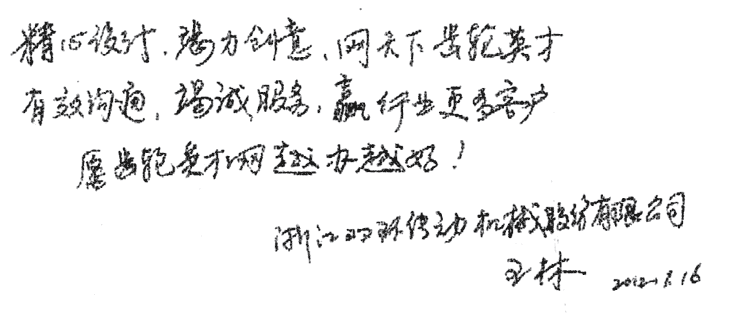 精心设计，竭力创意，网天下齿轮英才
有效沟通，竭诚服务，赢行业更多客户
愿齿轮英才网越办越好！
浙江双环传动机械股份有限公司
王林 2012.1.16